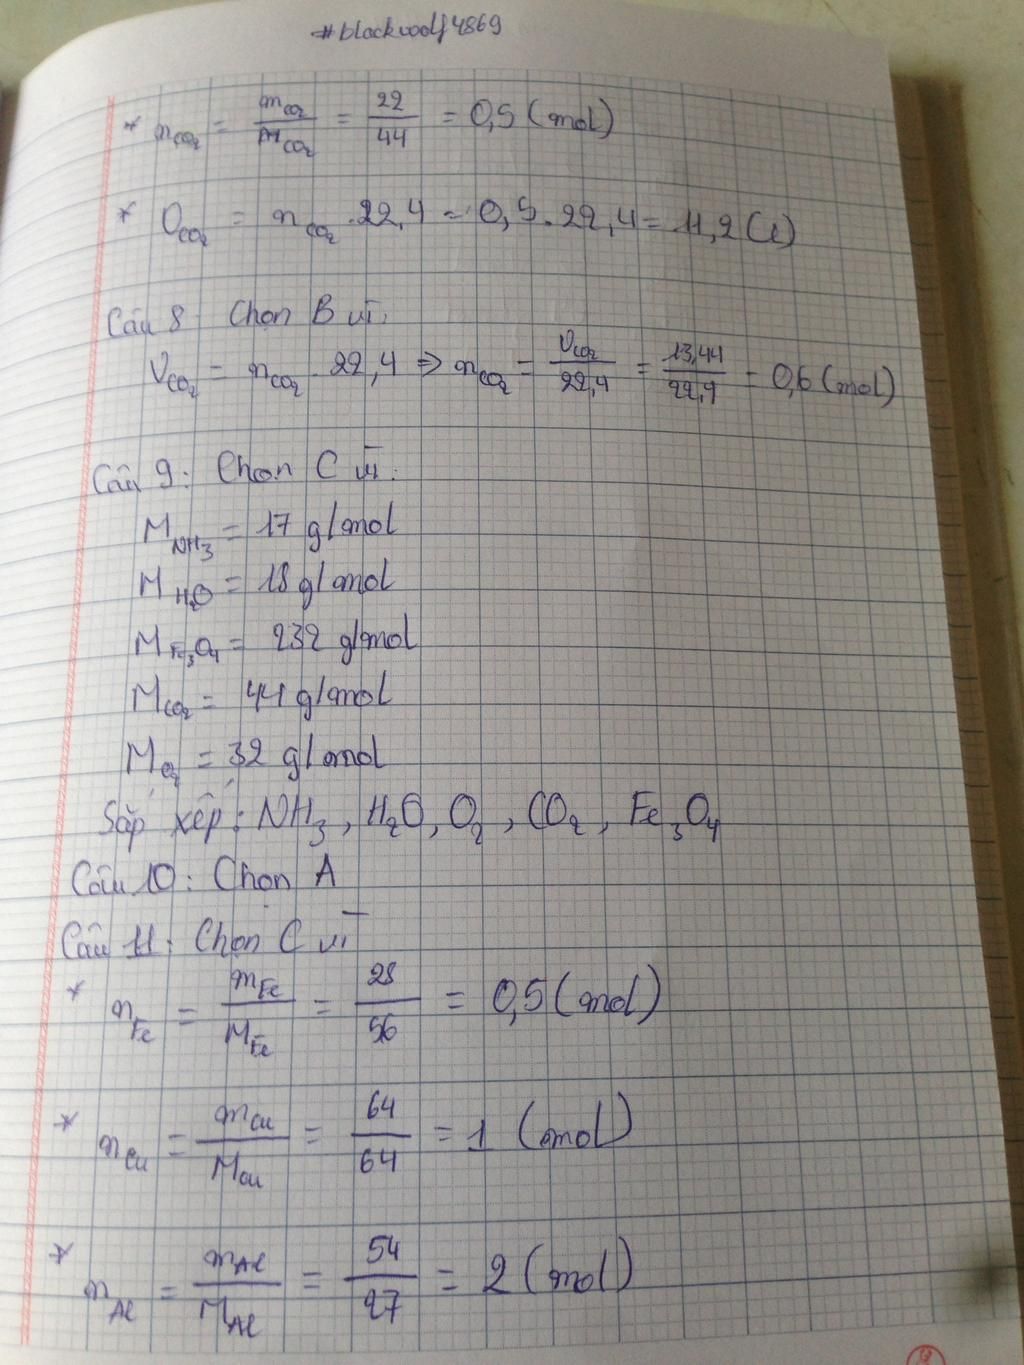 #blackwolf4869
* nCO2 = mCO2/MCO2 = 22/44 = 0,5 (mol)
* VCO2 = nCO2 . 22,4 = 0,5 . 22,4 = 11,2 (l)
Câu 8: Chọn B vì:
VCO2 = nCO2 . 22,4 => nCO2 = VCO2/22,4 = 13,44/22,4 = 0,6 (mol)
Câu 9: Chọn C vì:
MNH3 = 17 g/mol
MH2O = 18 g/mol
MFe3O4 = 232 g/mol
MCO2 = 44 g/mol
MO2 = 32 g/mol
Sắp xếp: NH3, H2O, O2, CO2, Fe3O4
Câu 10: Chọn A
Câu 11: Chọn C vì
* nFe = mFe/MFe = 28/56 = 0,5 (mol)
* nCu = mCu/MCu = 64/64 = 1 (mol)
* nAl = mAl/MAl = 54/27 = 2 (mol)